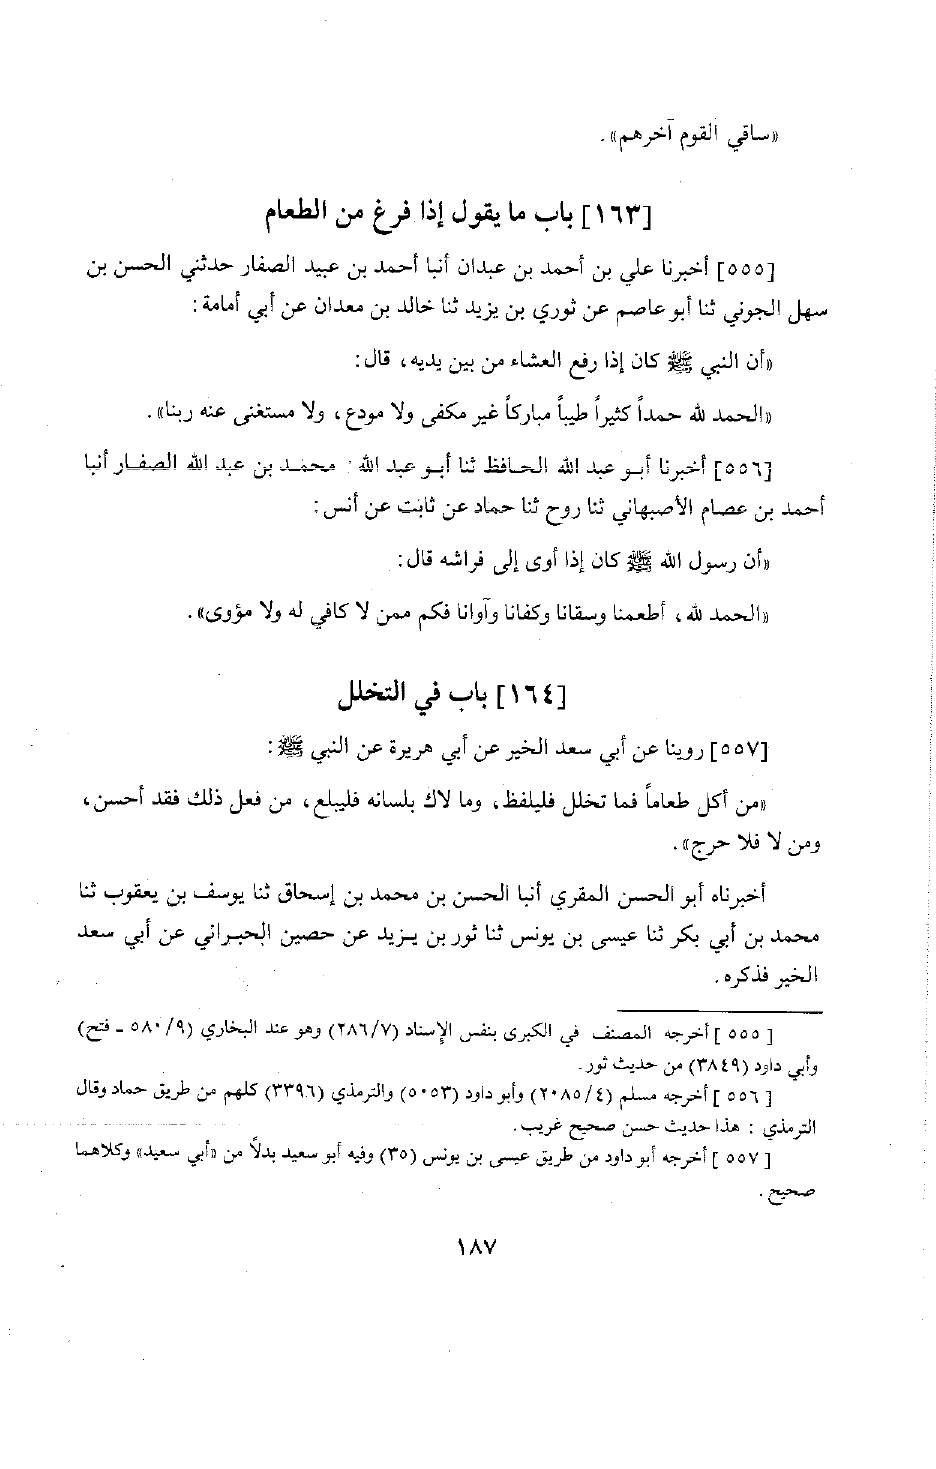 «ساقي القوم آخرهم».
[١٦٣] باب ما يقول إذا فرغ من الطعام
[٥٥٥] أخبرنا علي بن أحمد بن عبدان أنبا أحمد بن عبيد الصفار حدثني الحسن بن
سهل الجوني ثنا أبو عاصم عن ثوري بن يزيد ثنا خالد بن معدان عن أبي أمامة:
«أن النبي ﷺ كان إذا رفع العشاء من بين يديه، قال:
«الحمد لله حمداً كثيراً طيباً مباركاً غير مكفى ولا مودع، ولا مستغنى عنه ربنا».
[٥٥٦] أخبرنا أبو عبد الله الحافظ ثنا أبو عبد الله: محمد بن عبد الله الصفار أنبا
أحمد بن عصام الأصبهاني ثنا روح ثنا حماد عن ثابت عن أنس:
«أن رسول الله ﷺ كان إذا أوى إلى فراشه قال:
«الحمد لله، أطعمنا وسقانا وكفانا وآوانا فكم ممن لا كافي له ولا مؤوى».
[١٦٤] باب في التخلل
[٥٥٧] روينا عن أبي سعد الخير عن أبي هريرة عن النبي ﷺ:
«من أكل طعاماً فما تخلل فليلفظ، وما لاك بلسانه فليبلع، من فعل ذلك فقد أحسن،
ومن لا فلا حرج».
أخبرناه أبو الحسن المقري أنبا الحسن بن محمد بن إسحاق ثنا يوسف بن يعقوب ثنا
محمد بن أبي بكر ثنا عيسى بن يونس ثنا ثور بن يزيد عن حصين الحبراني عن أبي سعد
الخير فذكره.
[٥٥٥] أخرجه المصنف في الكبرى بنفس الإسناد (٢٨٦/٧) وهو عند البخاري (٥٨٠/٩ - فتح)
وأبي داود (٣٨٤٩) من حديث ثور.
[٥٥٦] أخرجه مسلم (٢٠٨٥/٤) وأبو داود (٥٠٥٣) والترمذي (٣٣٩٦) كلهم من طريق حماد وقال
الترمذي: هذا حديث حسن صحيح غريب.
[٥٥٧] أخرجه أبو داود من طريق عيسى بن يونس (٣٥) وفيه أبو سعيد بدلاً من «أبي سعيد» وكلاهما
صحيح.
١٨٧